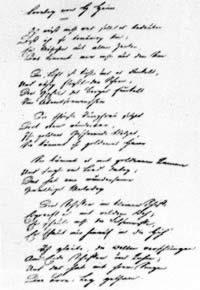 Ich weiß nicht was soll es bedeuten
Daß ich so traurig bin;
Ein Mährchen aus alten Zeiten,
Das kommt mir nicht aus dem Sinn.
Die Luft ist kühl und es dunkelt,
Und ruhig fließt der Rhein;
Der Gipfel des Berges funkelt
Im Abendsonnenschein.
Die schönste Jungfrau sitzet
Dort oben wunderbar,
Ihr goldnes Geschmeide blitzet,
Sie kämmt ihr goldenes Haar.
Sie kämmt es mit goldenem Kamme
Und singt ein Lied dabey;
Das hat eine wundersame
Gewaltige Melodey.
Den Schiffer im kleinen Schiffe
Ergreift es mit wildem Weh;
Er schaut nicht die Felsenriffe,
Er schaut nur hinauf in die Höh.
Ich glaube, die Wellen verschlingen
Am Ende Schiffer und Kahn;
Und das hat mit ihrem Singen
Die Lore-Ley gethan.